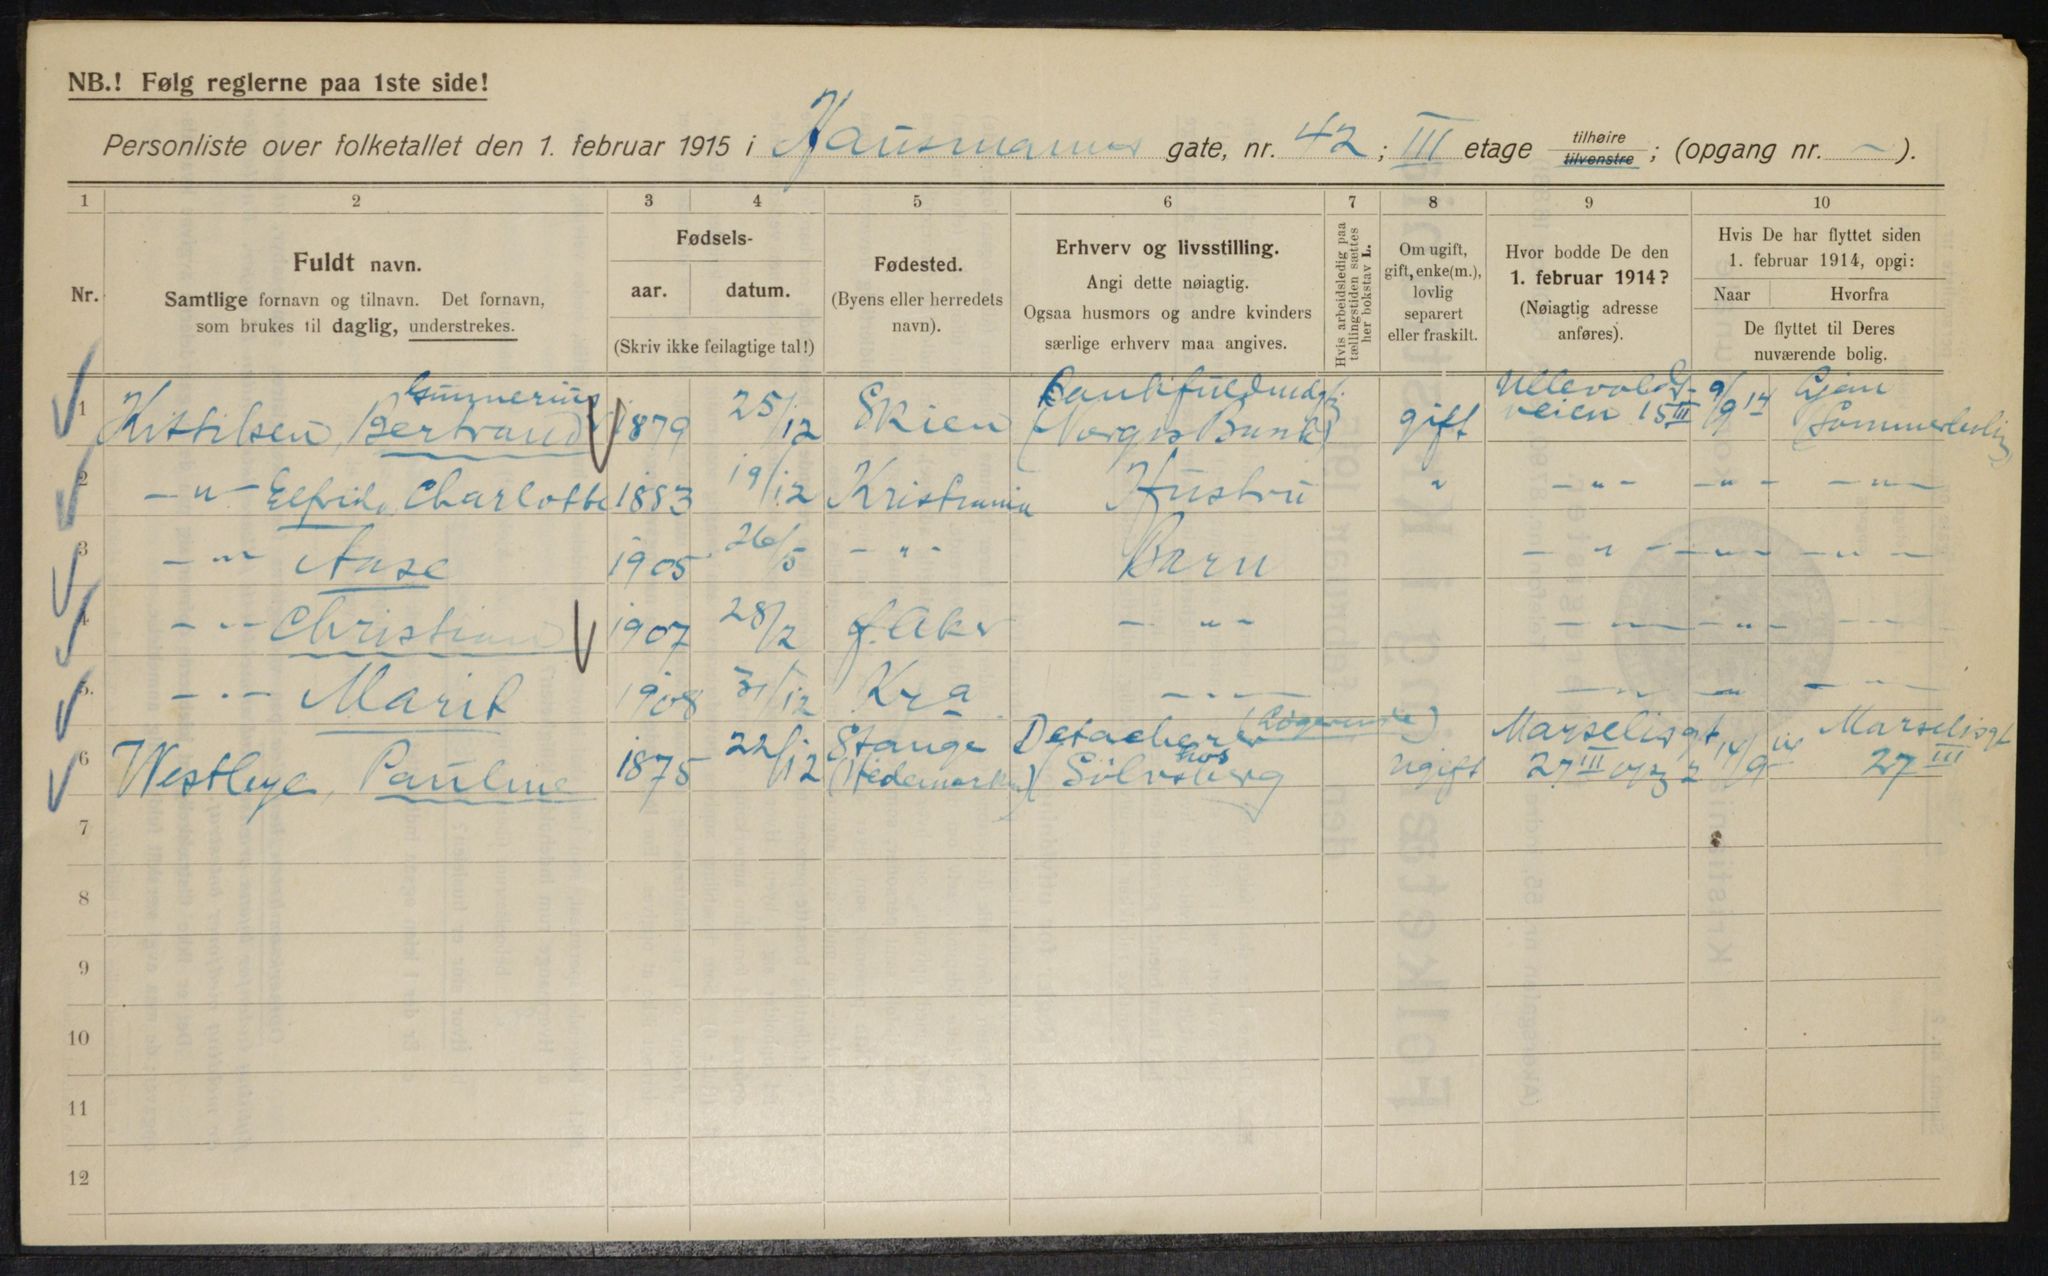 NB.! Følg reglerne paa 1ste side!
Personliste over folketallet den 1. februar 1915 i Hausmanns gate, nr. 42; III etage tilhøire tilvenstre; (opgang nr. – ).
1 2 3 4 5 6 7 8 9 10
Nr.
Fuldt navn.
Samtlige fornavn og tilnavn. Det fornavn,
som brukes til daglig, understrekes.
Fødsels-
aar. datum.
(Skriv ikke feilagtige tal!)
Fødested.
(Byens eller herredets
navn).
Erhverv og livsstilling.
Angi dette nøiagtig.
Ogsaa husmors og andre kvinders
særlige erhverv maa angives.
Hvis arbeidsledig paa
tællingstiden sættes
her bokstav L.
Om ugift,
gift, enke(m.),
lovlig
separert
eller fraskilt.
Hvor bodde De den
1. februar 1914?
(Nøiagtig adresse
anføres).
Hvis De har flyttet siden
1. februar 1914, opgi:
Naar Hvorfra
De flyttet til Deres
nuværende bolig.
1 Kittilsen, Bertrand Gunnerius 1879 25/12 Skien (Norges Bank) gift Ullevolds-
veien 15 III 9/9 14
2 – " – Elfrida Charlotte 1883 19/12 Kristiania Hustru " – " – – " – – " –
3 – " – Aase 1905 26/5 – " – Barn – " – – " – – " –
4 – " – Christian 1907 28/2 Aker – " – – " – – " – – –
5. – " – Marit 1908 31/12 Kra – " – – " – – " – – " –
6 Westlye, Pauline 1875 22/12 Stange (Hedemarken) hos Sølvsberg ugift Marselisgt
27 III opg 2 14/9 Marselisgt
27 III
7
8
9
10
11
12